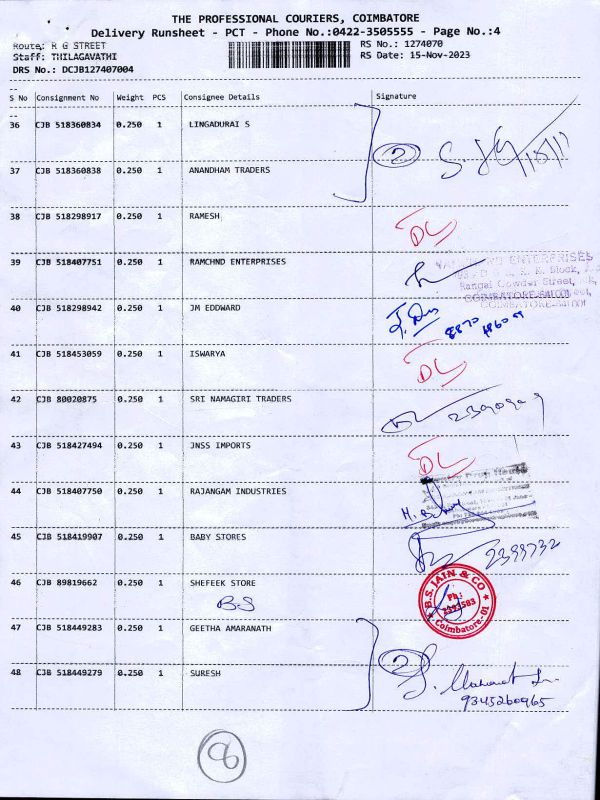 THE PROFESSIONAL COURIERS, COIMBATORE
Delivery Runsheet - PCT - Phone No.:0422-3505555 - Page No.:4
Route: R G STREET
RS No.: 1274070
Staff: THILAGAVATHI
RS Date: 15-Nov-2023
DRS No.: DCJB127407004
S No Consignment No Weight PCS Consignee Details Signature
36 CJB 518360834 0.250 1 LINGADURAI S
2
37 CJB 518360838 0.250 1 ANANDHAM TRADERS
38 CJB 518298917 0.250 1 RAMESH
DL
39 CJB 518407751 0.250 1 RAMCHND ENTERPRISES
ENTERPRISES
Block,
Rangai Gowder Street,
COIMBATORE-641001
COIMBATORE-641001
40 CJB 518298942 0.250 1 JM EDDWARD
41 CJB 518453059 0.250 1 ISWARYA
DL
42 CJB 80020875 0.250 1 SRI NAMAGIRI TRADERS
43 CJB 518427494 0.250 1 JNSS IMPORTS
DL
44 CJB 518407750 0.250 1 RAJANGAM INDUSTRIES
45 CJB 518419907 0.250 1 BABY STORES
2399732
46 CJB 89819662 0.250 1 SHEFEEK STORE
B.S
B.S. JAIN & CO
Ph:
2393583
Coimbatore-01
47 CJB 518449283 0.250 1 GEETHA AMARANATH
2
48 CJB 518449279 0.250 1 SURESH
9345260965
8